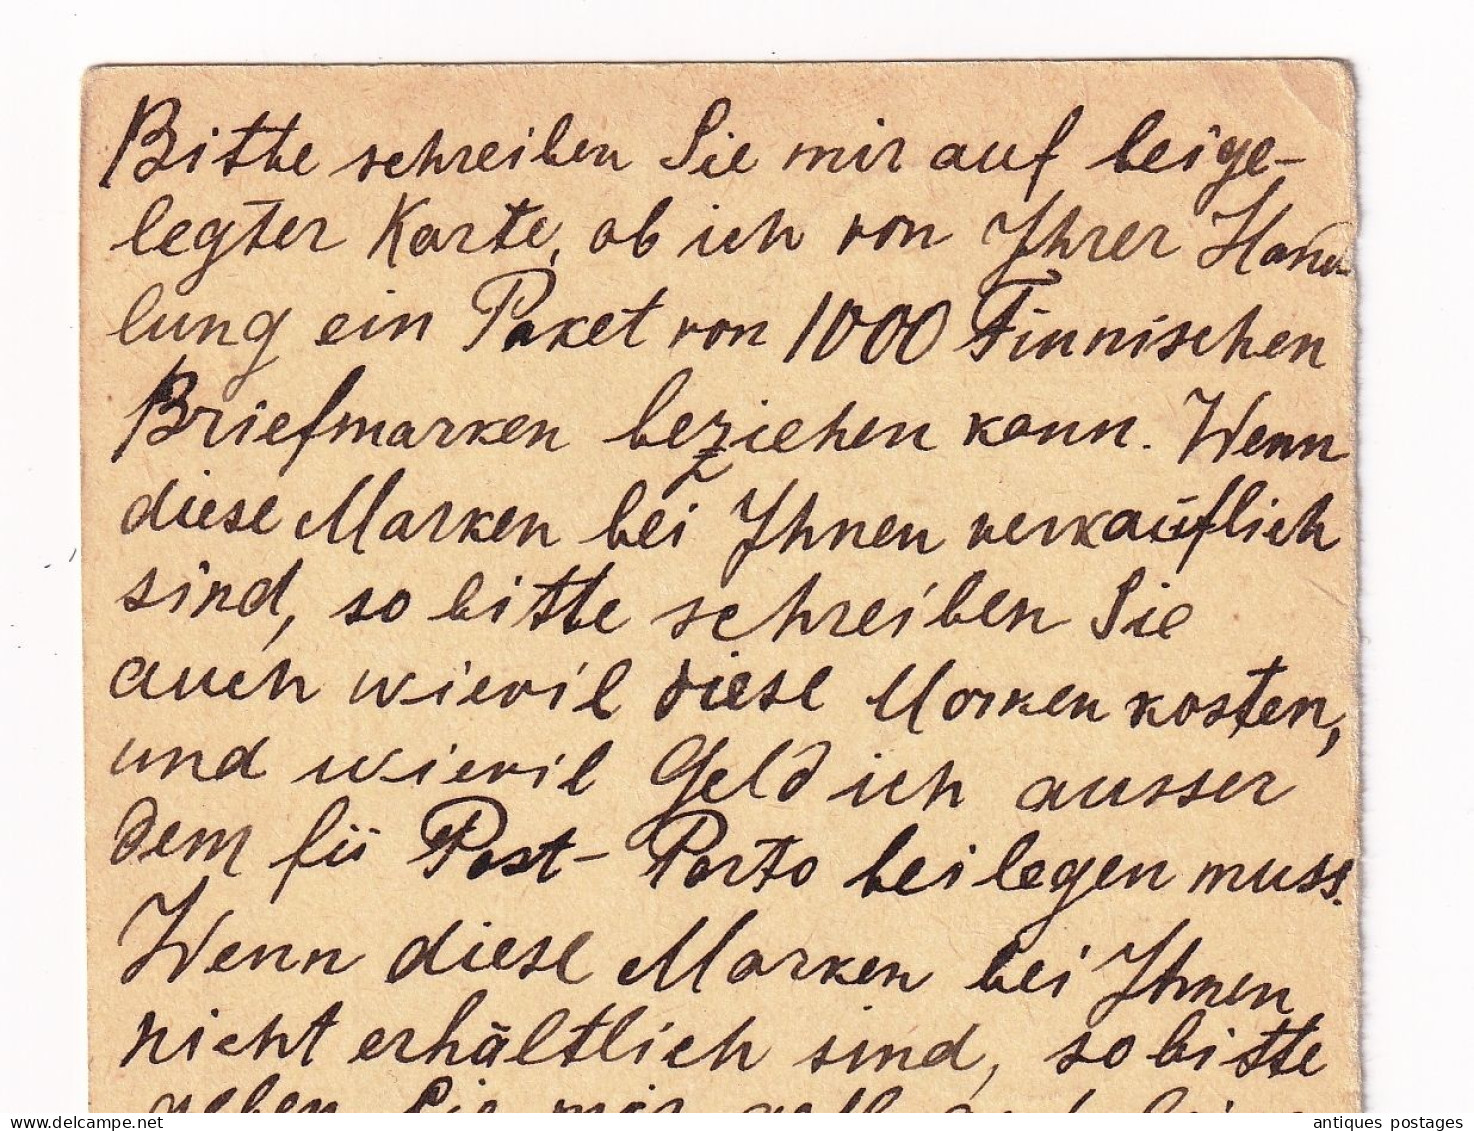 Bitte schreiben Sie mir auf beige-
legter Karte, ob ich von Ihrer Hand-
lung ein Paket von 1000 Finnischen
Briefmarken beziehen kann. Wenn
diese Marken bei Ihnen verkäuflich
sind, so bitte schreiben Sie
auch wievil diese Marken kosten,
und wievil Geld ich ausser
dem fü Post-Porto beilegen muss.
Wenn diese Marken bei Ihnen
nicht erhältlich sind, so bitte
geben Sie mir
antiques postages